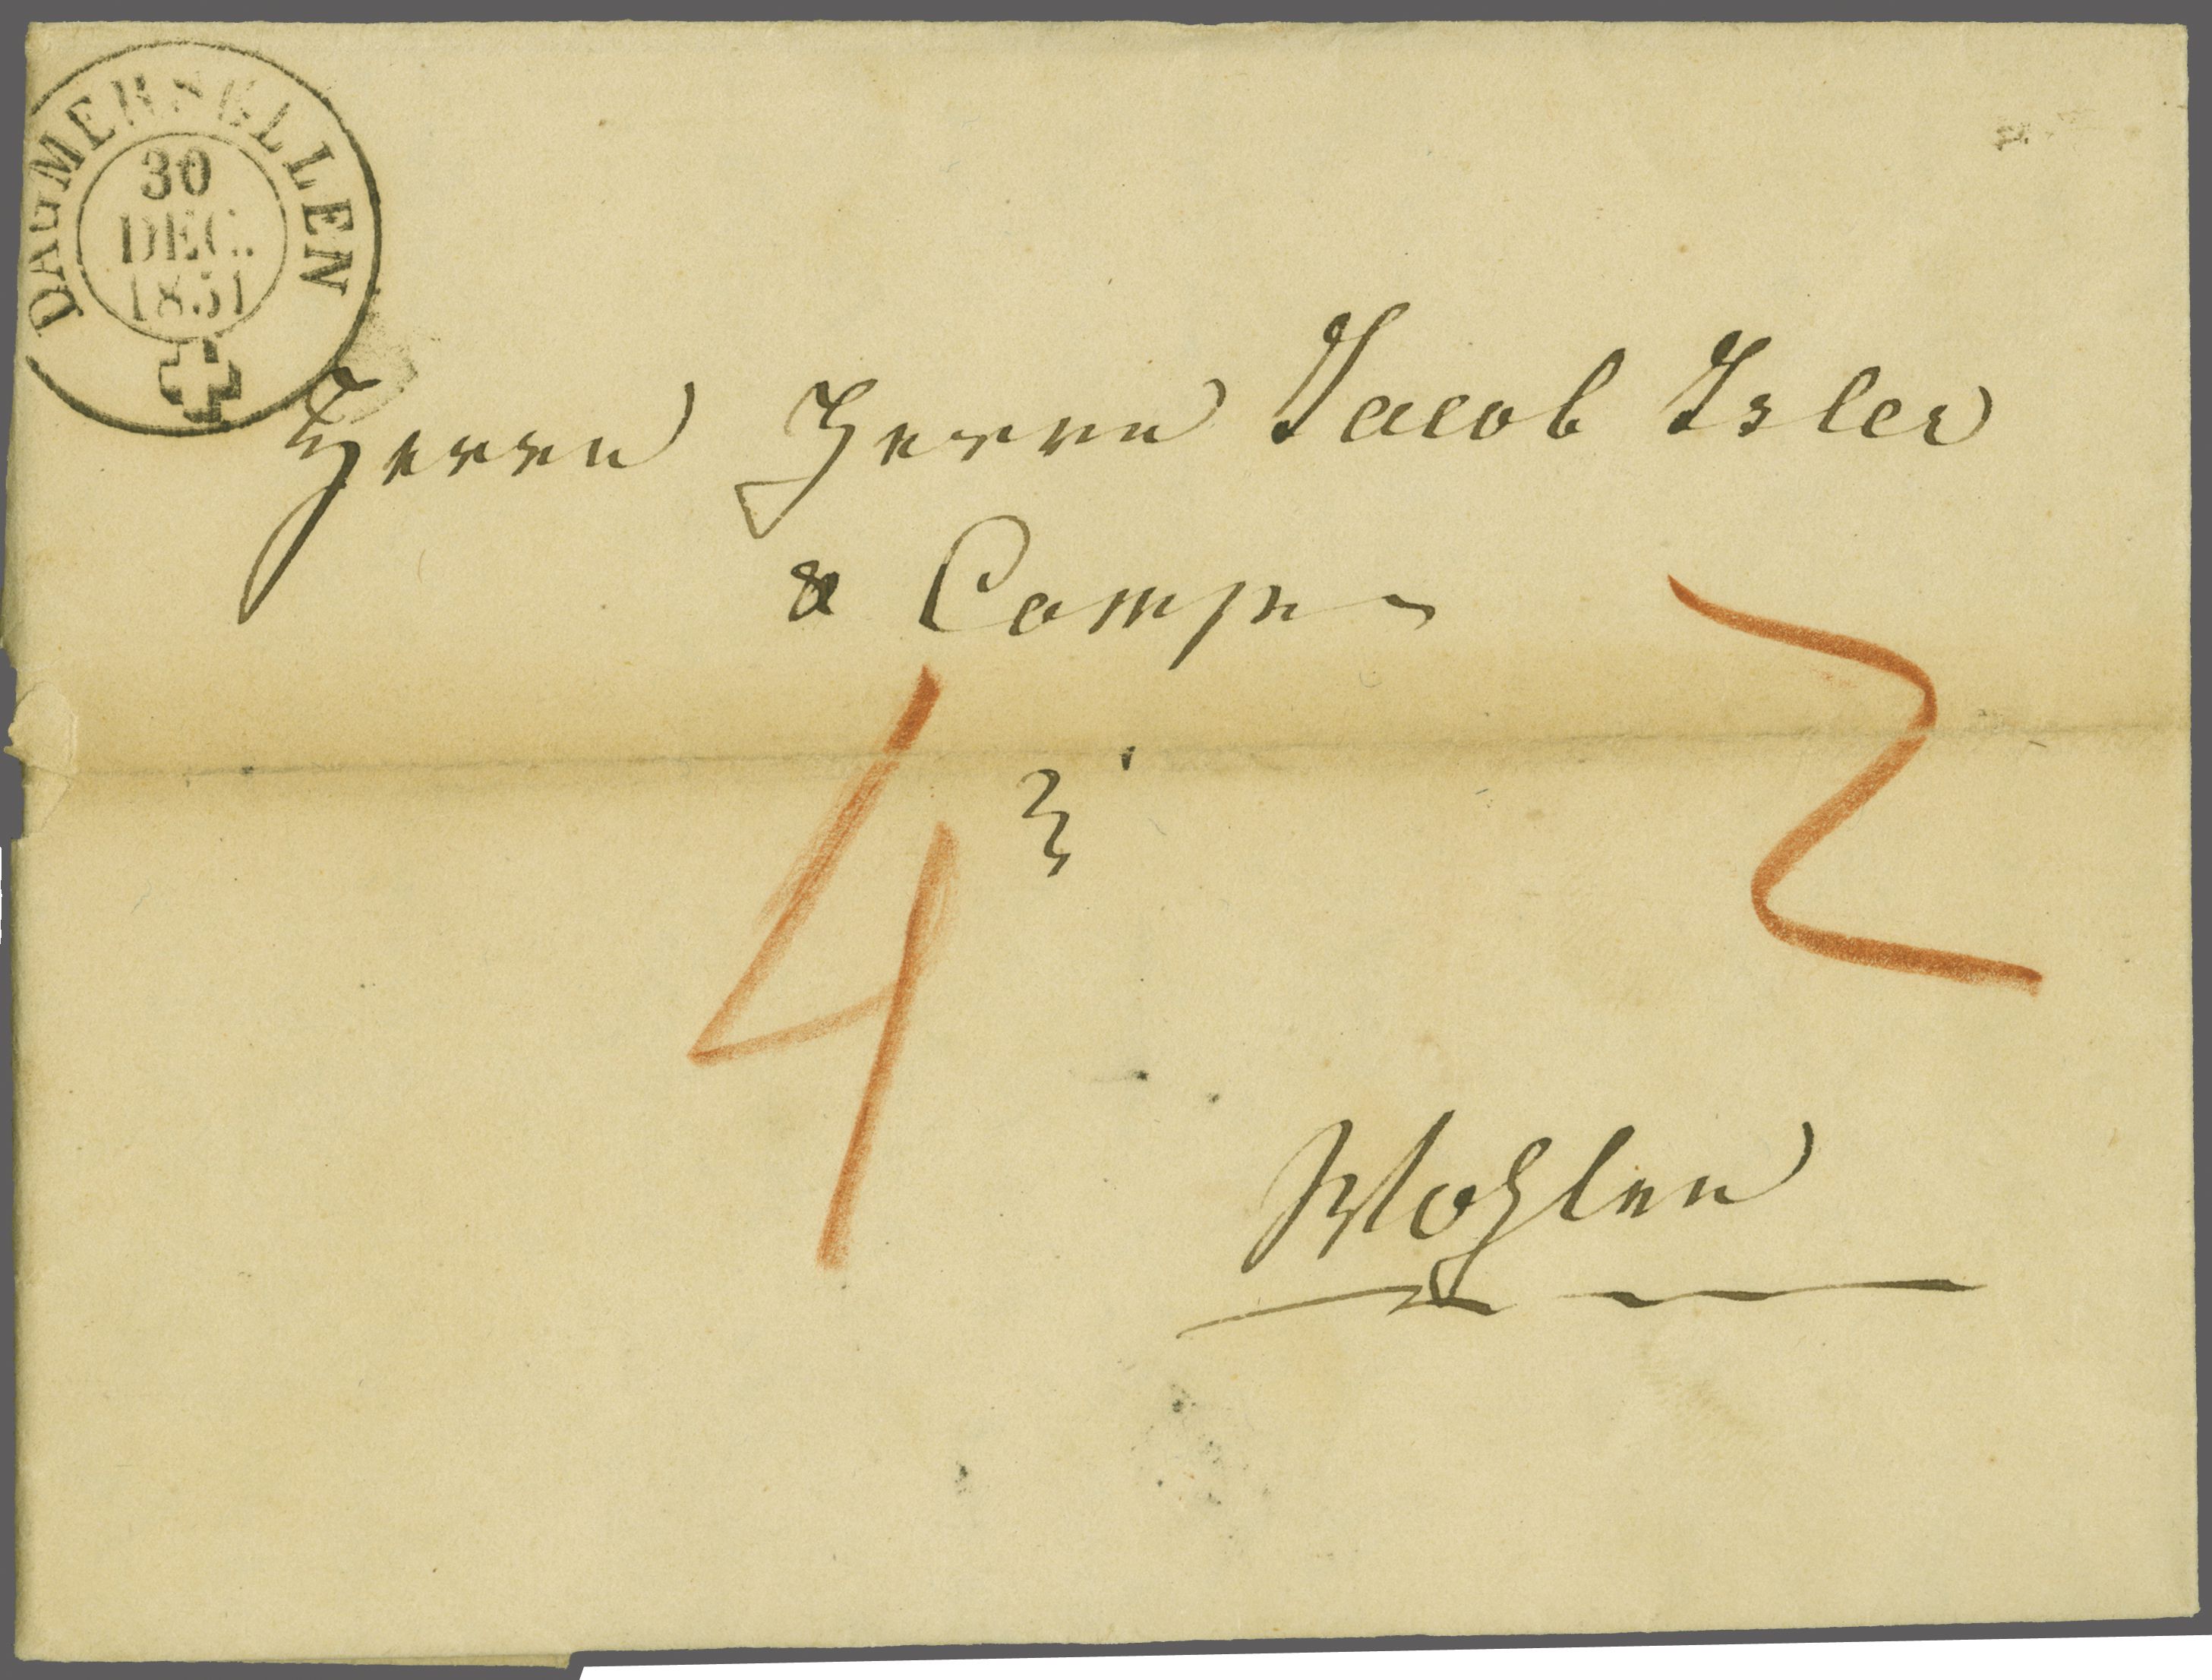 DAGMERSELLEN
30
DEC.
1851
Herrn Herrn Jacob Isler
& Comp
4
2
in
Wohlen